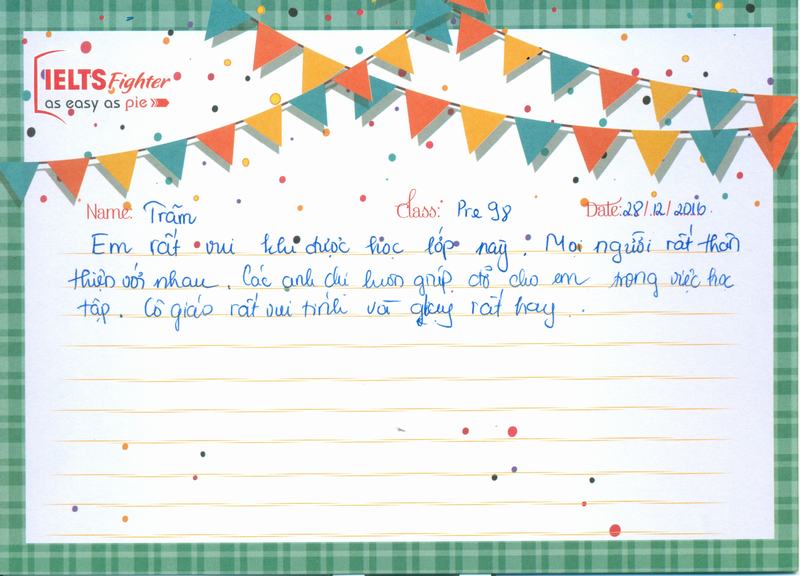 IELTS Fighter
as easy as pie
Name: Trãm Class: Pre 98 Date: 28/12/2016.
Em rất vui khi được học lớp này. Mọi người rất thân
thiện với nhau. Các anh chị luôn giúp đỡ cho em trong việc học
tập. Cô giáo rất vui tính và giảng rất hay.